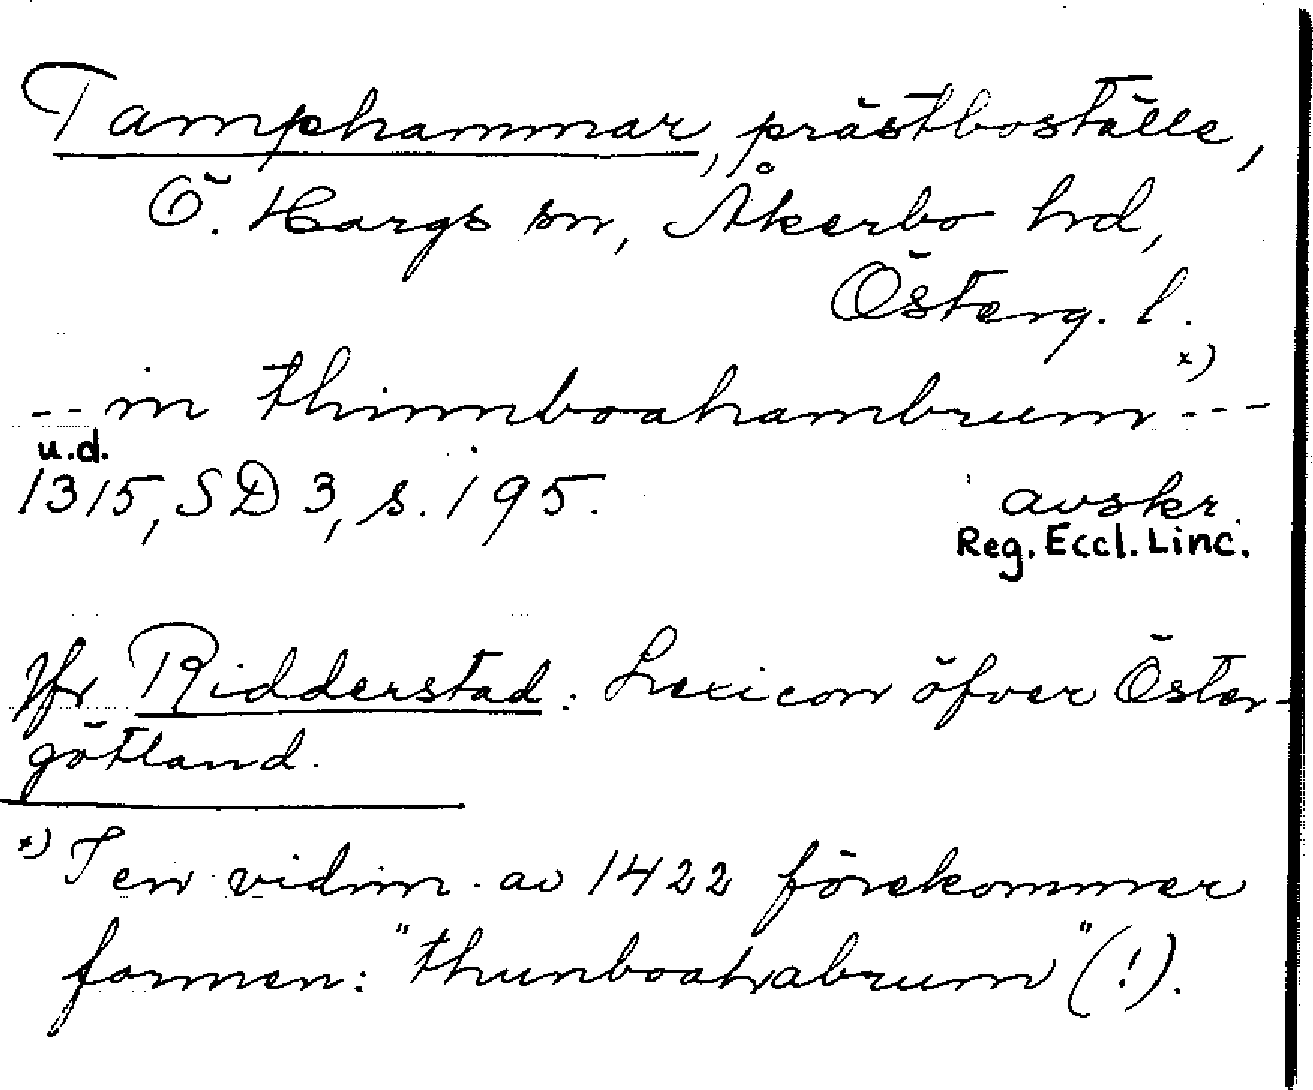 Tamphammar, prästboställe,
Ö. Hargs sn, Åkerbo hd,
Österg. l.
-- in thinnboahambrum x) ---
u.d.
1315, SD 3, s. 195. avskr.
Reg. Eccl. Linc.
Jfr Ridderstad: Lexicon öfver Öster-
götland.
x) I en vidim. av 1422 förekommer
formen: "thunboahabrum" (!).